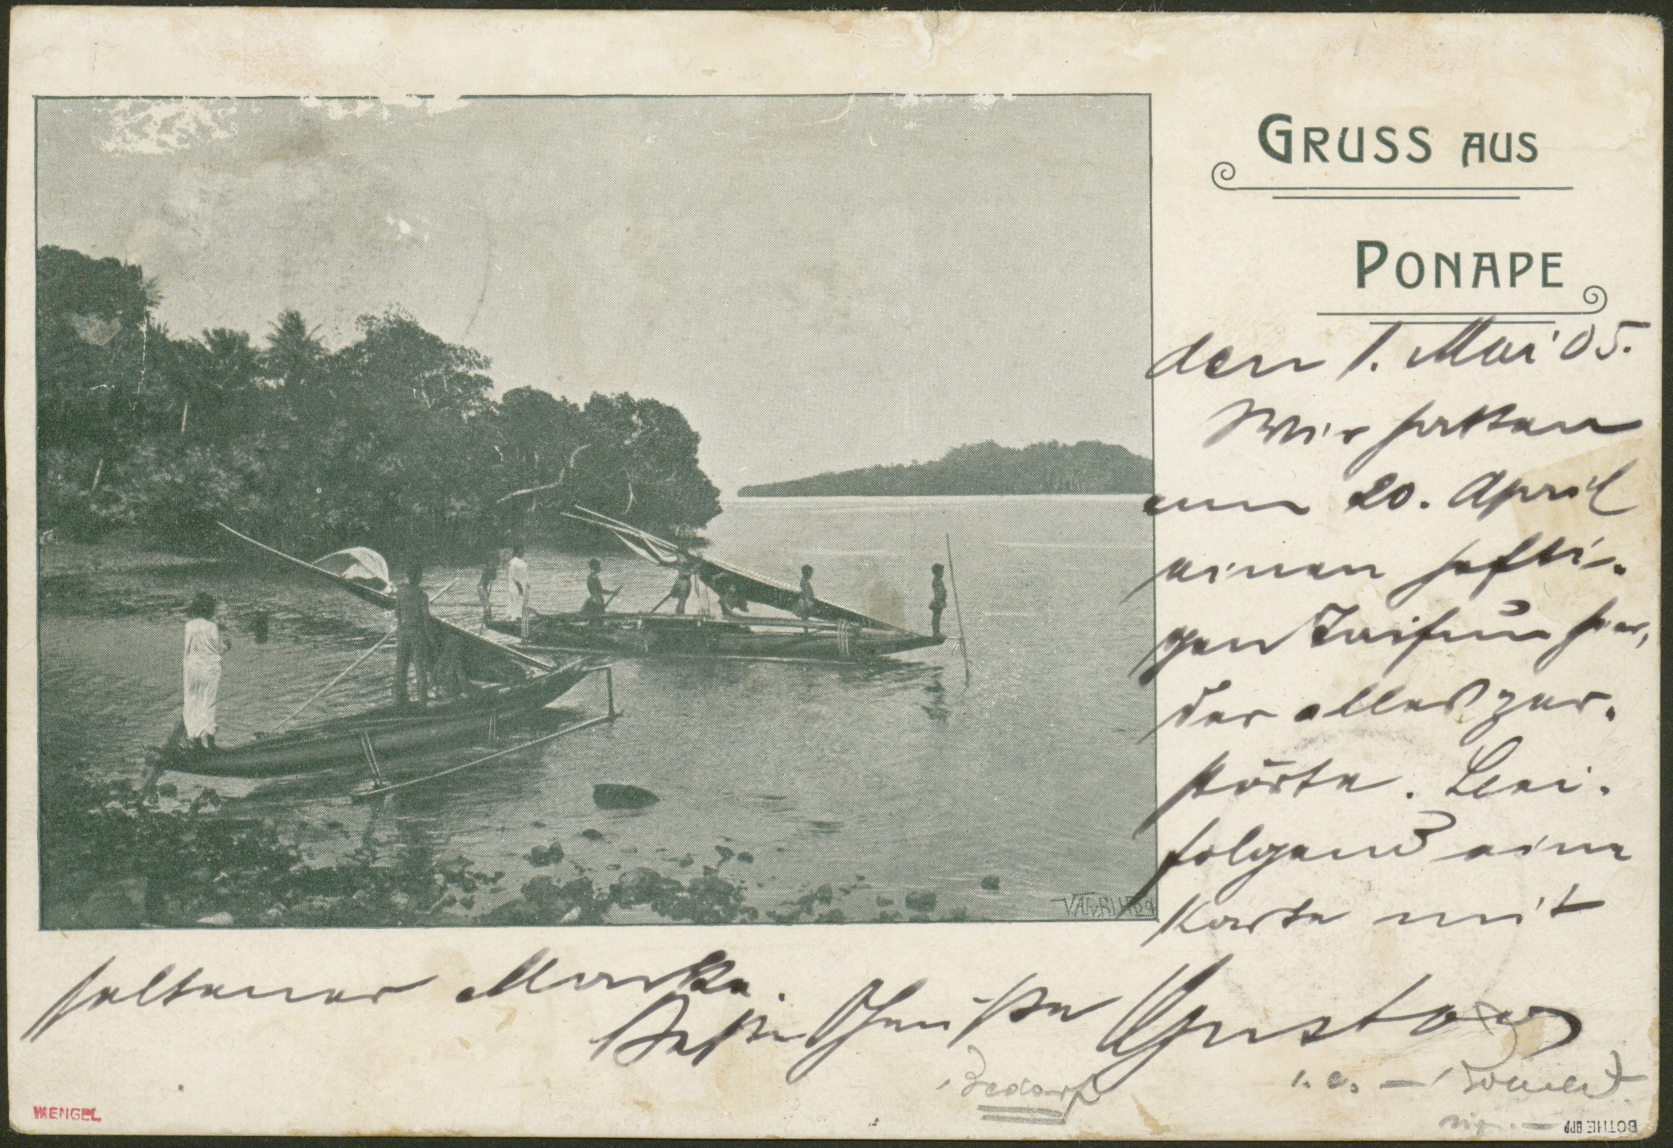 GRUSS AUS
PONAPE
den 1. Mai 05.
Wir hatten
am 20. April
einen hefti-
gen Taifun hier,
der alles zer-
störte. Bei-
folgend eine
Karte mit
seltener Marke.
Beste Grüße Gustav
Bedarf
WENGEL
BOTHE BPP